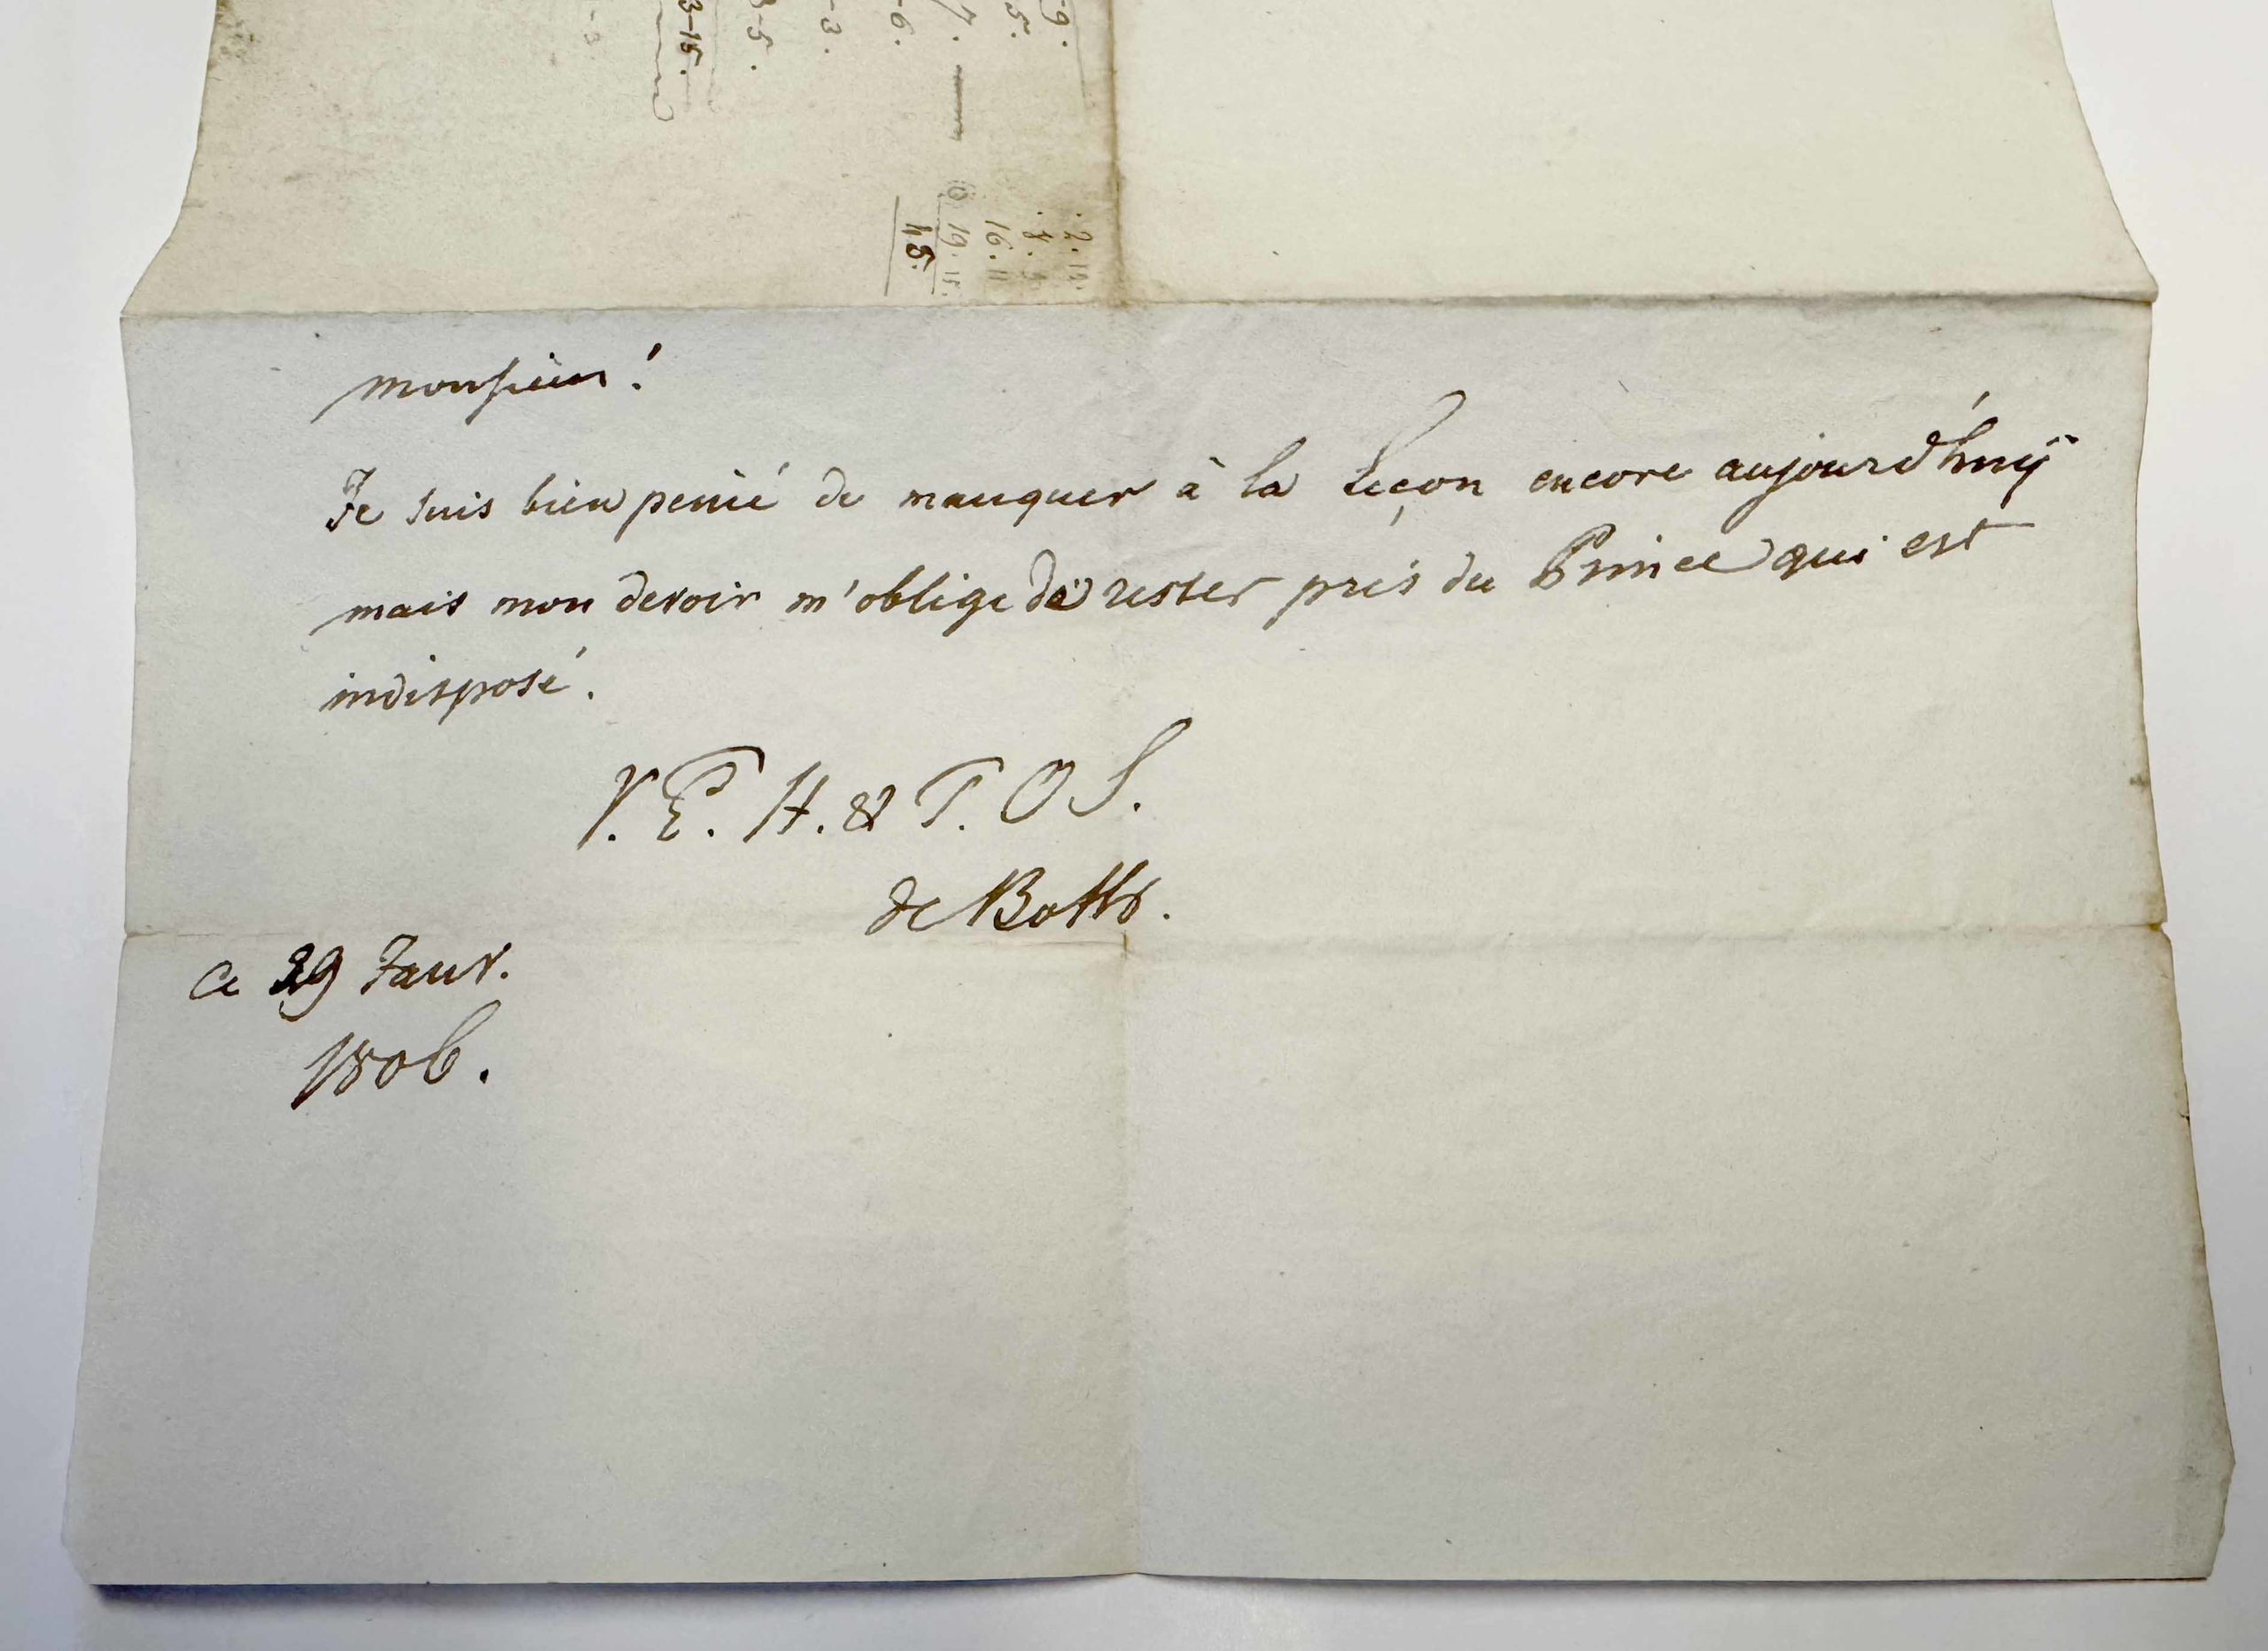 monsieur!
Je suis bien peiné de manquer à la Leçon encore aujourd'huÿ
mais mon devoir m'oblige de rester près du Prince qui est
indisposé.
V. T. H. & T. O S.
de Both.
Ce 29 Janv.
1806.
-9.
5.
7.
-6.
-3.
3-5.
3-15.
-3
. 2. 12.
. 8.
16. 11
19. 15.
45.